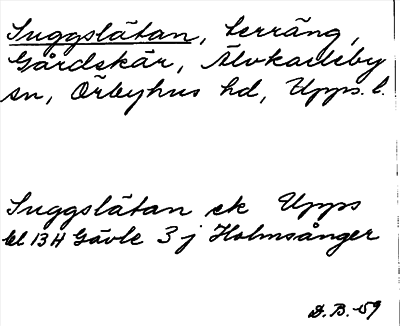 Suggslätan, terräng,
Gårdskär, Älvkarleby
sn, Örbyhus hd, Upps. l.
Suggslätan ek Upps
bl 13H Gävle 3 j Holmsånger
D. B. -59